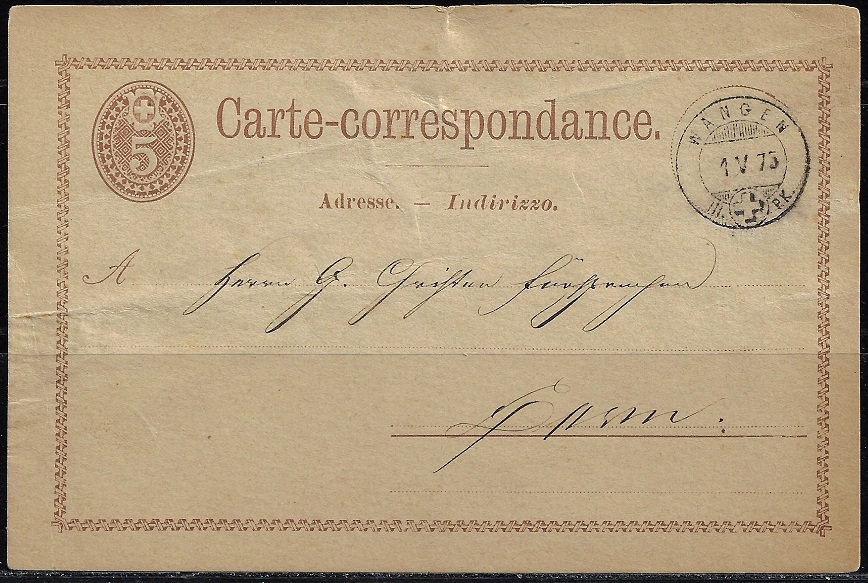 5
Carte-correspondance.
WANGEN
1 V 75
III. PK.
Adresse. — Indirizzo.
A Herrn G. Christen